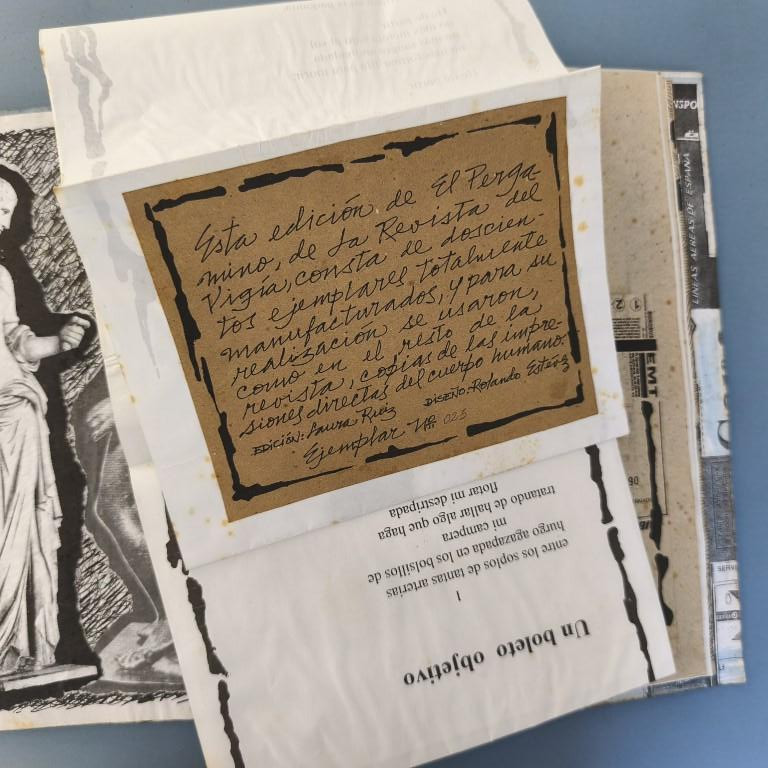 Esta edición de El Perga-
mino, de La Revista del
Vigía, consta de doscien-
tos ejemplares totalmente
manufacturados, y para su
realización se usaron,
como en el resto de la
revista, copias de las impre-
siones directas del cuerpo humano.
EDICIÓN: Laura Ruiz DISEÑO: Rolando Estévez
Ejemplar Nº 023
Un boleto objetivo
I
entre los soplos de tantas arterias
hurgo agazapada en los bolsillos de
mi campera
tratando de hallar algo que haga
flotar mi destripada
NSPO
LINEAS AEREAS DE ESPAÑA
EMT
SERVI